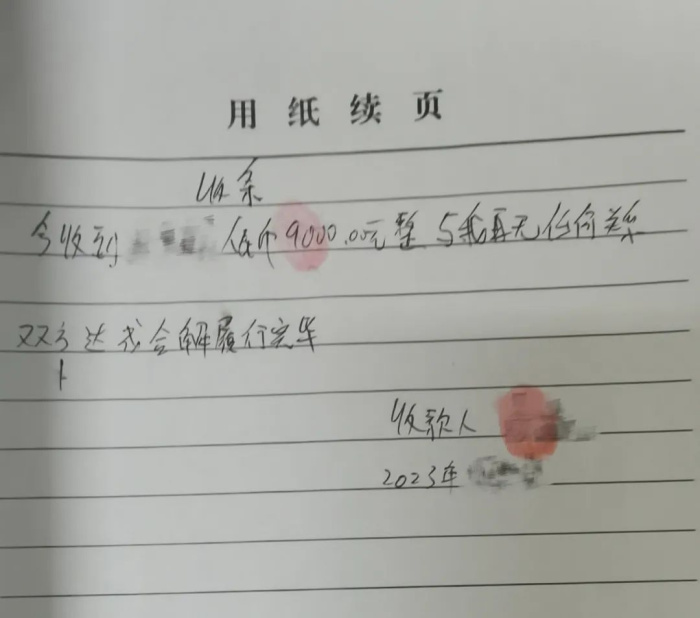 用纸续页
收条
今收到 民币9000.00元整 与我再无任何关系
双方达成合解履行完毕
收款人
2023年